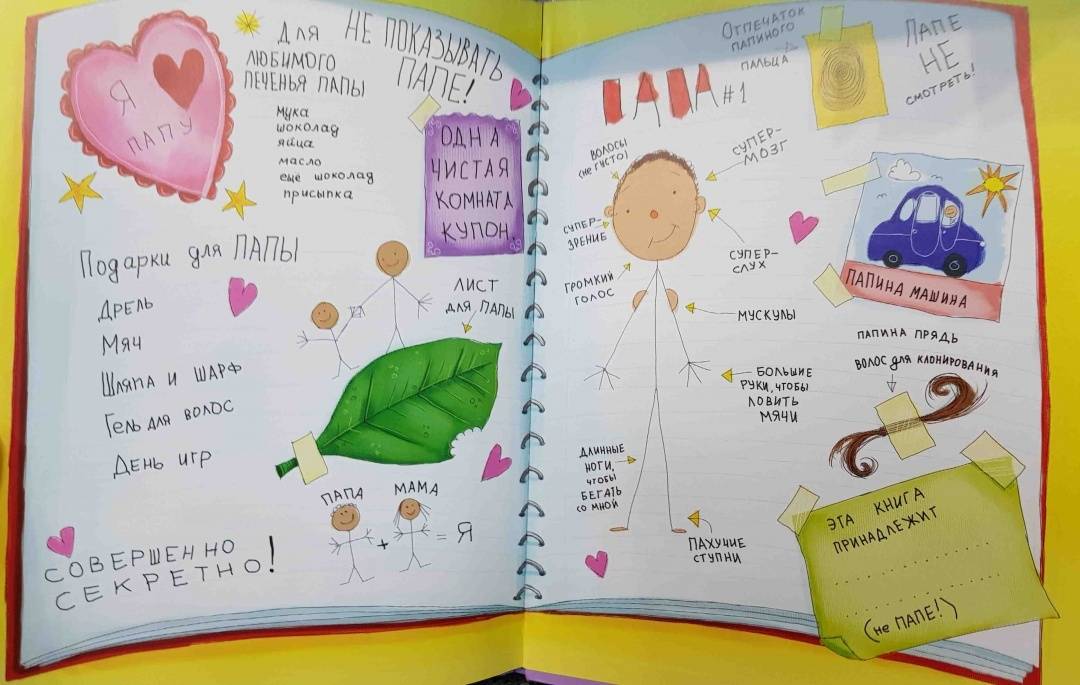 Я
ПАПУ
ДЛЯ
ЛЮБИМОГО
ПЕЧЕНЬЯ ПАПЫ
мука
шоколад
яйца
масло
ещё шоколад
присыпка
НЕ ПОКАЗЫВАТЬ
ПАПЕ!
ОДНА
ЧИСТАЯ
КОМНАТА
КУПОН.
Подарки для ПАПЫ
Дрель
Мяч
Шляпа и шарф
Гель для волос
День игр
ЛИСТ
ДЛЯ ПАПЫ
ПАПА
МАМА
+ = Я
СОВЕРШЕННО
СЕКРЕТНО!
ПАПА #1
ОТПЕЧАТОК
ПАПИНОГО
ПАЛЬЦА
ПАПЕ
НЕ
СМОТРЕТЬ!
ВОЛОСЫ
(НЕ ГУСТО)
СУПЕР-
МОЗГ
СУПЕР-
ЗРЕНИЕ
СУПЕР-
СЛУХ
ГРОМКИЙ
ГОЛОС
МУСКУЛЫ
БОЛЬШИЕ
РУКИ, ЧТОБЫ
ЛОВИТЬ
МЯЧИ
ДЛИННЫЕ
НОГИ,
ЧТОБЫ
БЕГАТЬ
СО МНОЙ
ПАХУЧИЕ
СТУПНИ
ПАПИНА МАШИНА
ПАПИНА ПРЯДЬ
ВОЛОС ДЛЯ КЛОНИРОВАНИЯ
ЭТА КНИГА
ПРИНАДЛЕЖИТ
(не ПАПЕ!)